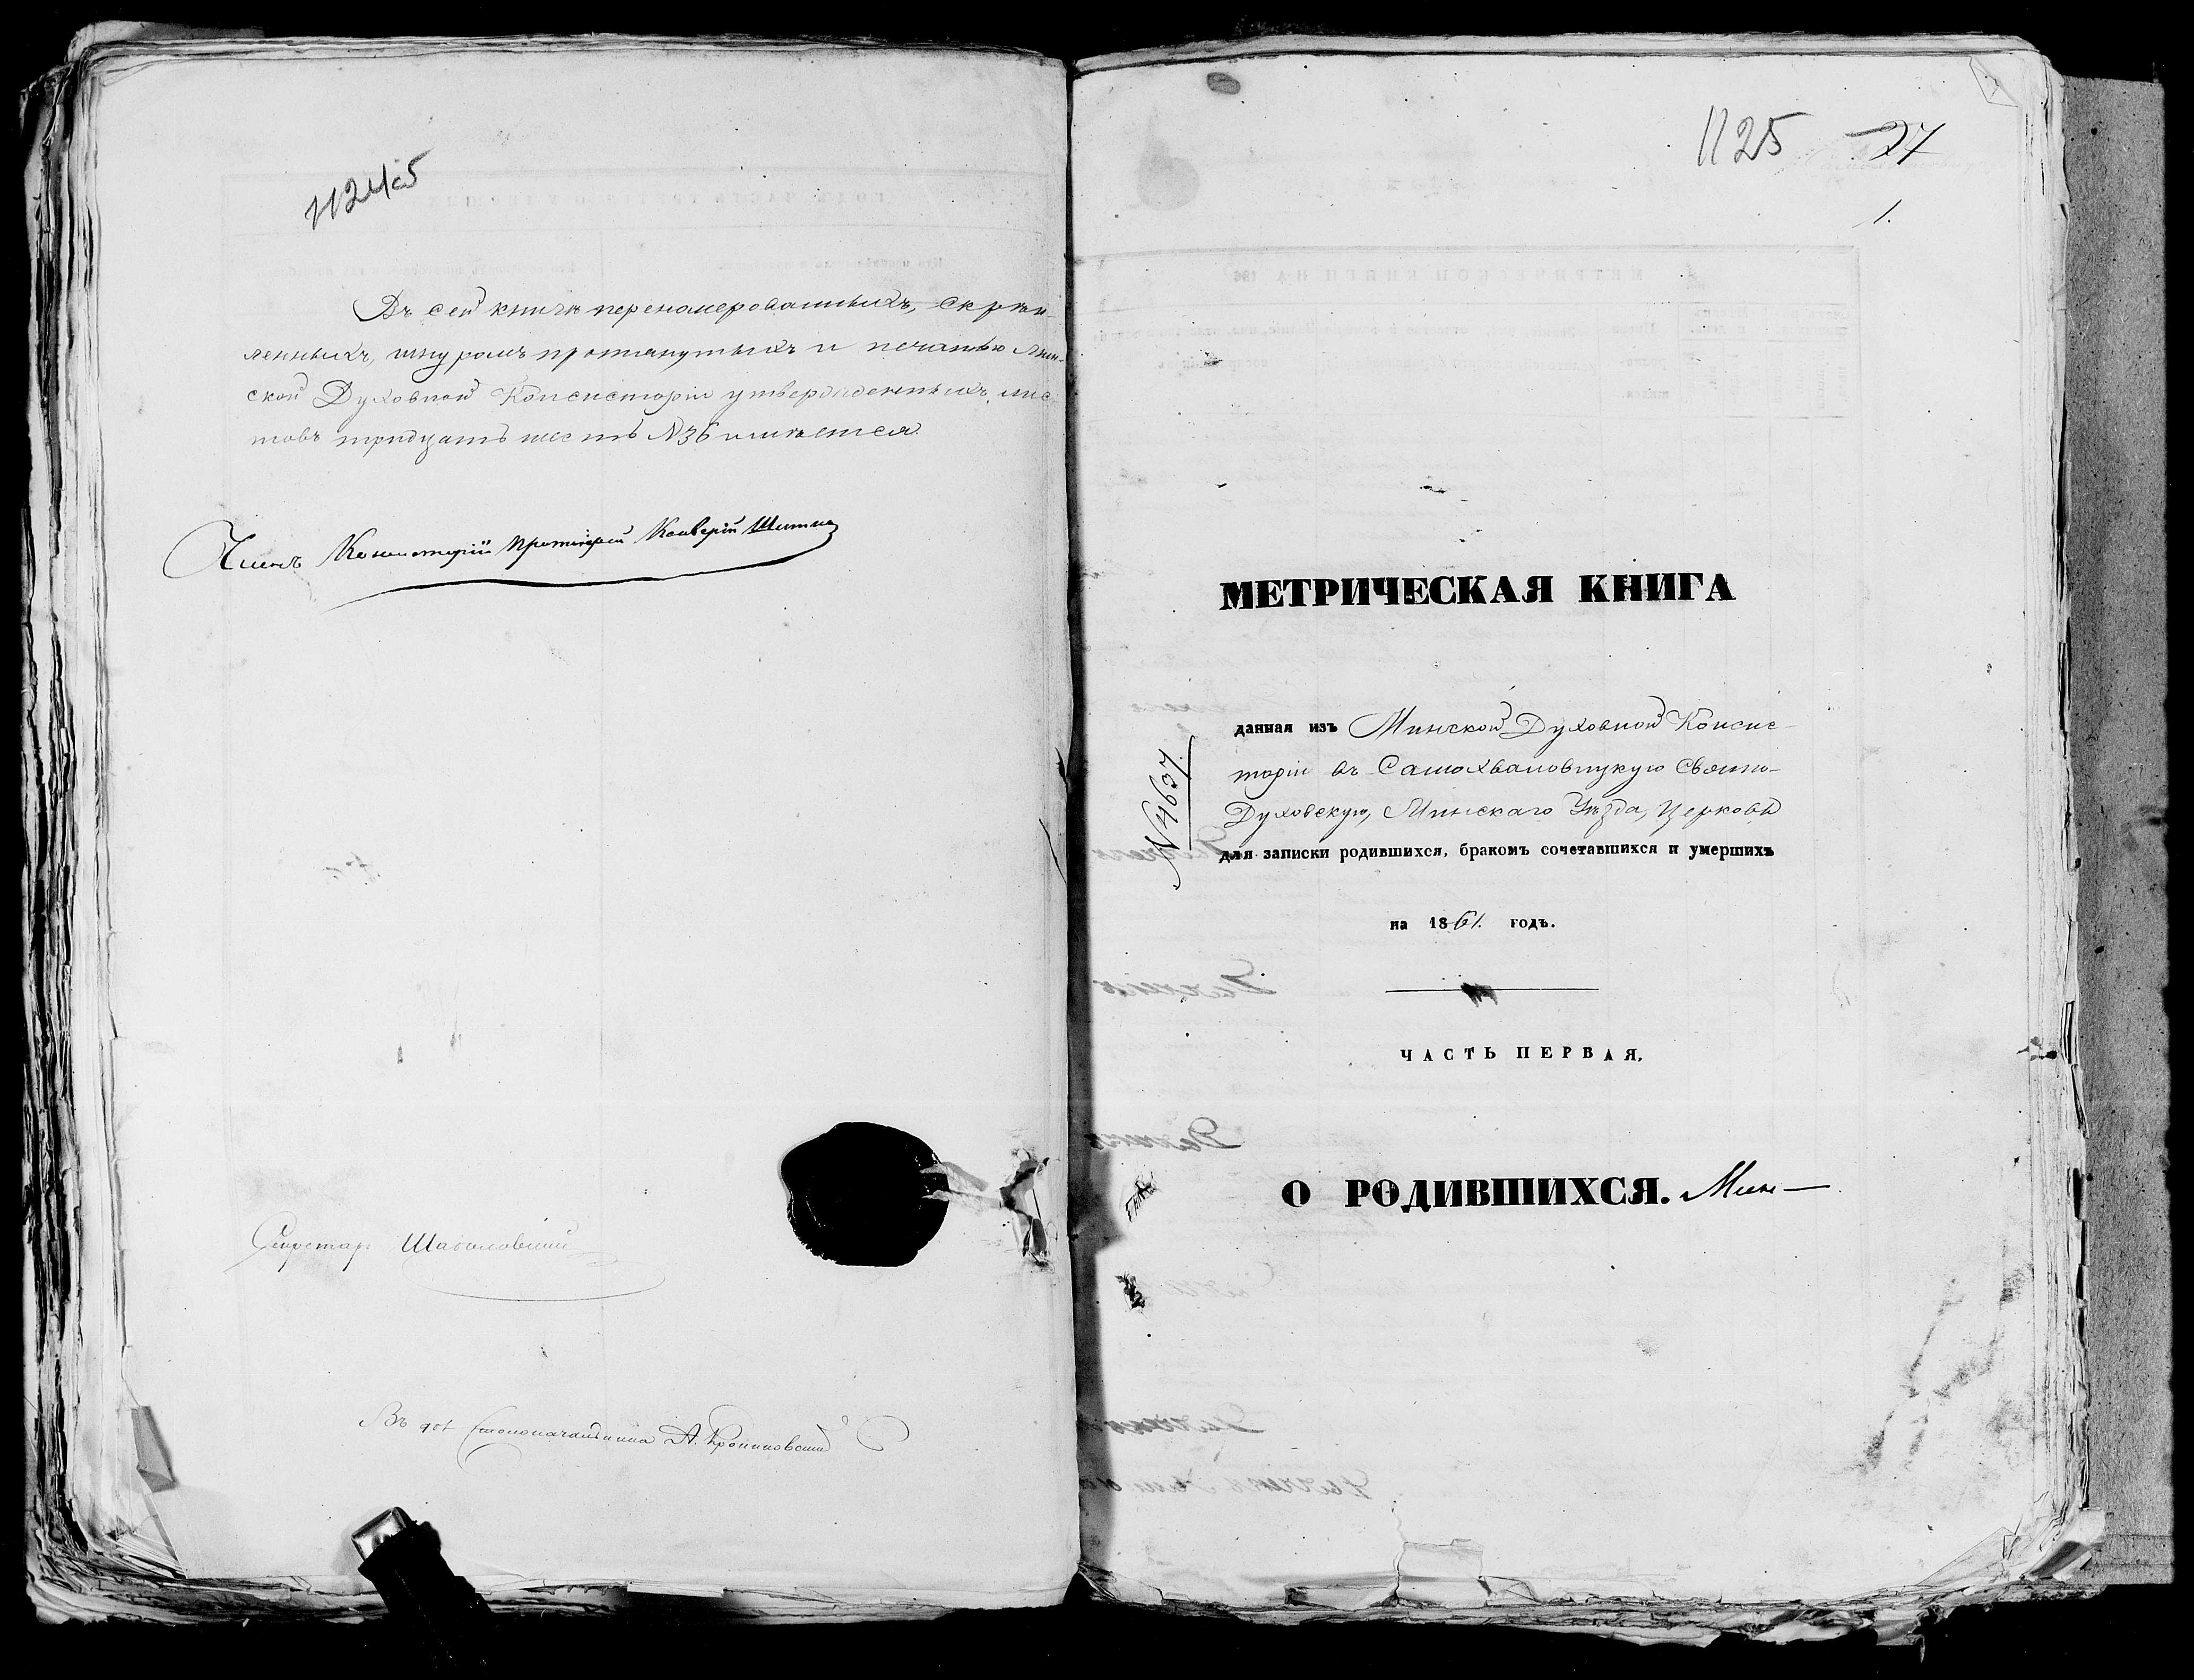 Въ сей книгѣ перенамерованныхъ, скрѣп-
ленныхъ, шнуромъ протянутыхъ и печатью Мин-
ской Духовной Консисторіи утвержденныхъ, лис-
товъ тридцать шесть №36 имѣется.
Членъ Консисторіи Протоіерей
Секретарь
Въ дол. Столоначальника А.
1125 27
1.
МЕТРИЧЕСКАЯ КНИГА
№4637.
данная изъ Минской Духовной Консис-
торіи въ Самохваловицкую Свято-
Духовскую, Минскаго Уѣзда, Церковь
для записки родившихся, бракомъ сочетавшихся и умершихъ
на 1861. годъ.
ЧАСТЬ ПЕРВАЯ.
О РОДИВШИХСЯ. Мин—